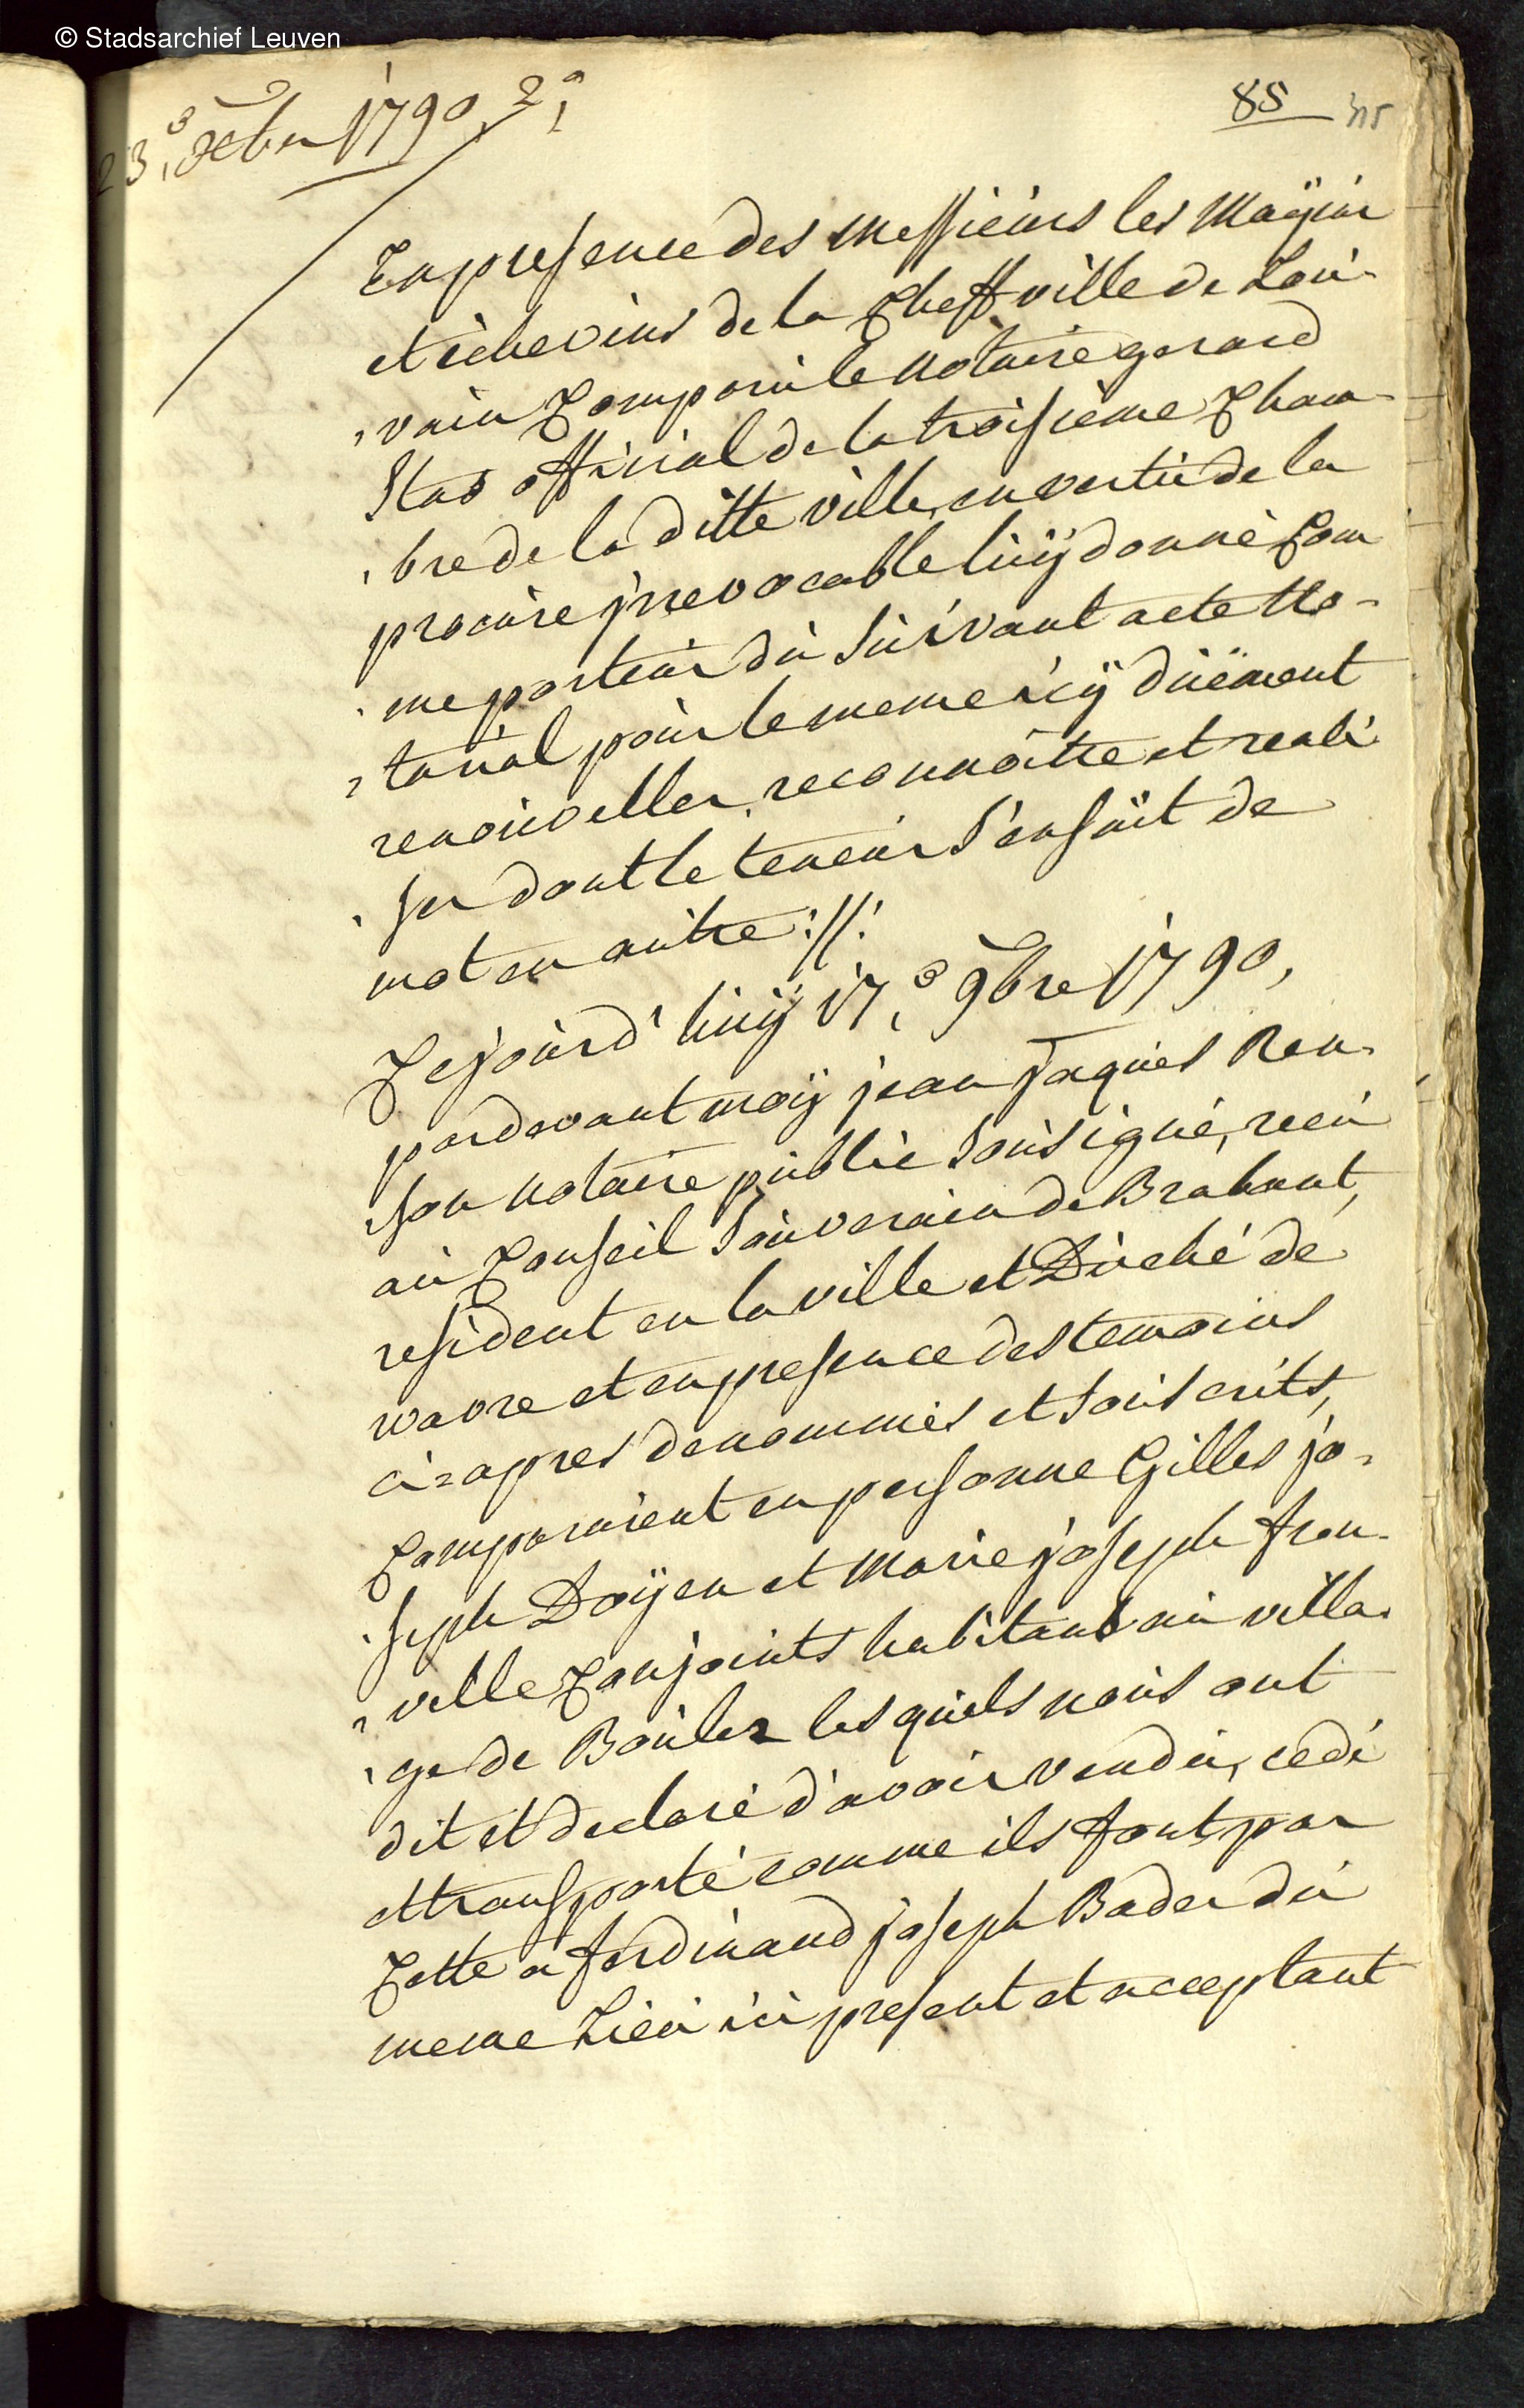 © Stadsarchief Leuven
23. 8ber 1790, 2a
85 315
En presence des messieurs les Mayeur
et echevins de la Cheff ville de Lou-
vain Comparu le notaire gerard
Stas official de la troisieme Cham-
bre de la ditte ville, en vertu de la
procure irrevocable luÿ donné Com
me porteur du suivant acte No-
tarial pour le meme icÿ duëment
renouveller, reconnoitre et reali-
ser dont le teneur s'ensuit de
mot en autre ://:
Cejourd'huÿ 17.e 9bre 1790,
pardevant moÿ jean jaques Ren-
son notaire public sousigné, reçu
au Conseil Souverain de Brabant,
resident en la ville et Duché de
wavre et en presence des temoins
ci=apres denommés et souscrits,
Comparurent en personne Gilles jo-
seph Doÿen et Marie joseph fran-
ville Conjoints habitans au villa-
ge de Boulez lesquels nous ont
dit et declaré d'avoir vendu, cedé
et transporté comme ils font par
Cette a ferdinand joseph Bader du
meme Lieu ici present et acceptant